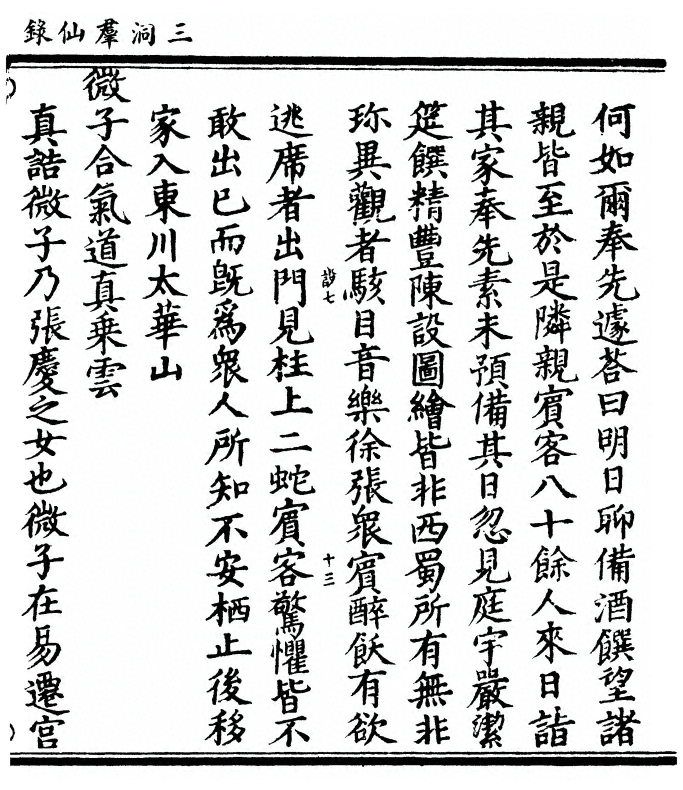 三洞羣仙錄
何如爾奉先遽荅曰明日聊備酒饌望諸
親皆至於是隣親賓客八十餘人來日詣
其家奉先素未預備其日忽見庭宇嚴潔
筵饌精豐陳設圖繪皆非西蜀所有無非
珎異觀者駭目音樂徐張衆賓醉飫有欲
設七
十三
逃席者出門見柱上二蛇賓客驚懼皆不
敢出已而旣爲衆人所知不安栖止後移
家入東川太華山
微子合氣道真乗雲
真誥微子乃張慶之女也微子在易遷宮